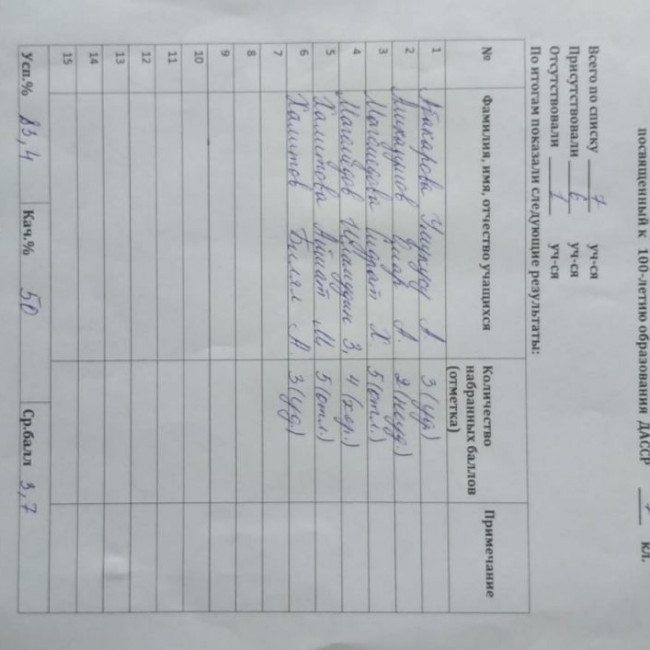 посвященный к 100-летию образования ДАССР кл.
Всего по списку 7 уч-ся
Присутствовали 6 уч-ся
Отсутствовали 1 уч-ся
По итогам показали следующие результаты:
№ Фамилия, имя, отчество учащихся Количество набранных баллов (отметка) Примечание
1 Абакарова А. 3 (уд)
2 Омар А. 2 (неуд)
3 Магомедова Х 5 (отл.)
4 Магомедов Исламуддин З. 4 (хор.)
5 Халитова Айшат М. 5 (отл.)
6 Халитов Билял А. 3 (уд)
7
8
9
10
11
12
13
14
15
Усп.% 83,4 Кач.% 50 Ср.балл 3,7